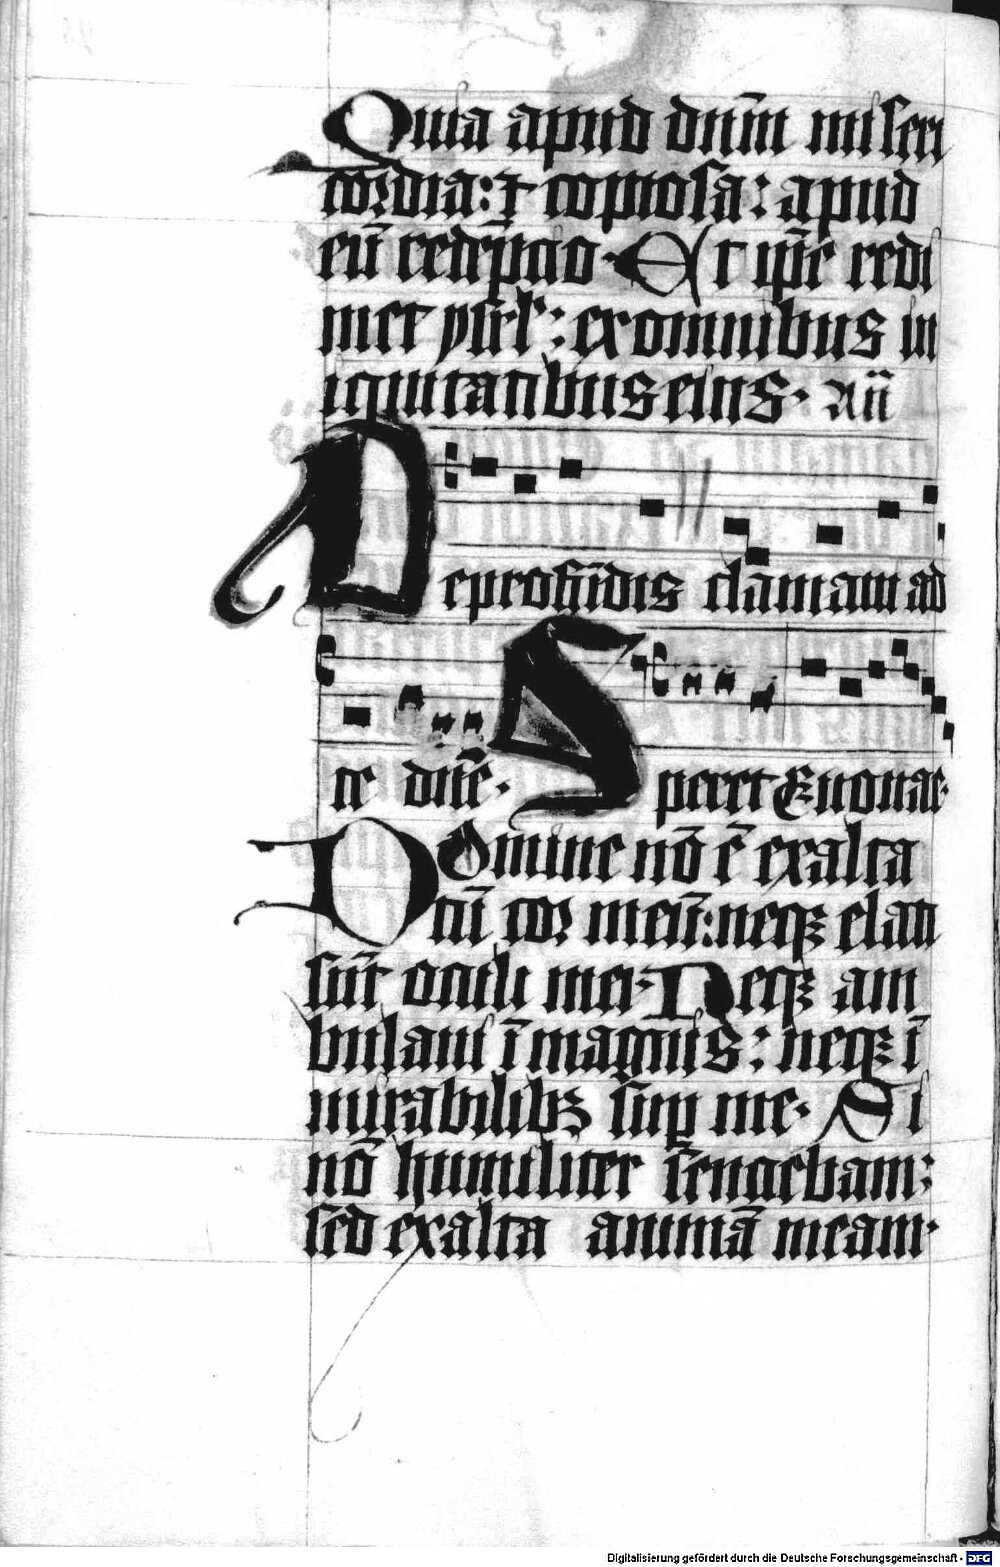 Quia apud dnm̄ miseri
cordia: ⁊ copiosa: apud
eū redēpcio. Et ip̄e redi
met ysrl': ex omnibus in
iquitatibus eius. Añ
De profūdis clamaui ad
te dn̄e. Speret Euouae.
Domine nō ē exalta
tū cor meū: neqꝫ elati
sūt oculi mei. Neqꝫ am
bulaui ī magnis: neqꝫ ī
mirabilibꝫ suꝑ me. Si
nō humiliter sentiebam:
sed exalta animā meam.
Digitalisierung gefördert durch die Deutsche Forschungsgemeinschaft - DFG